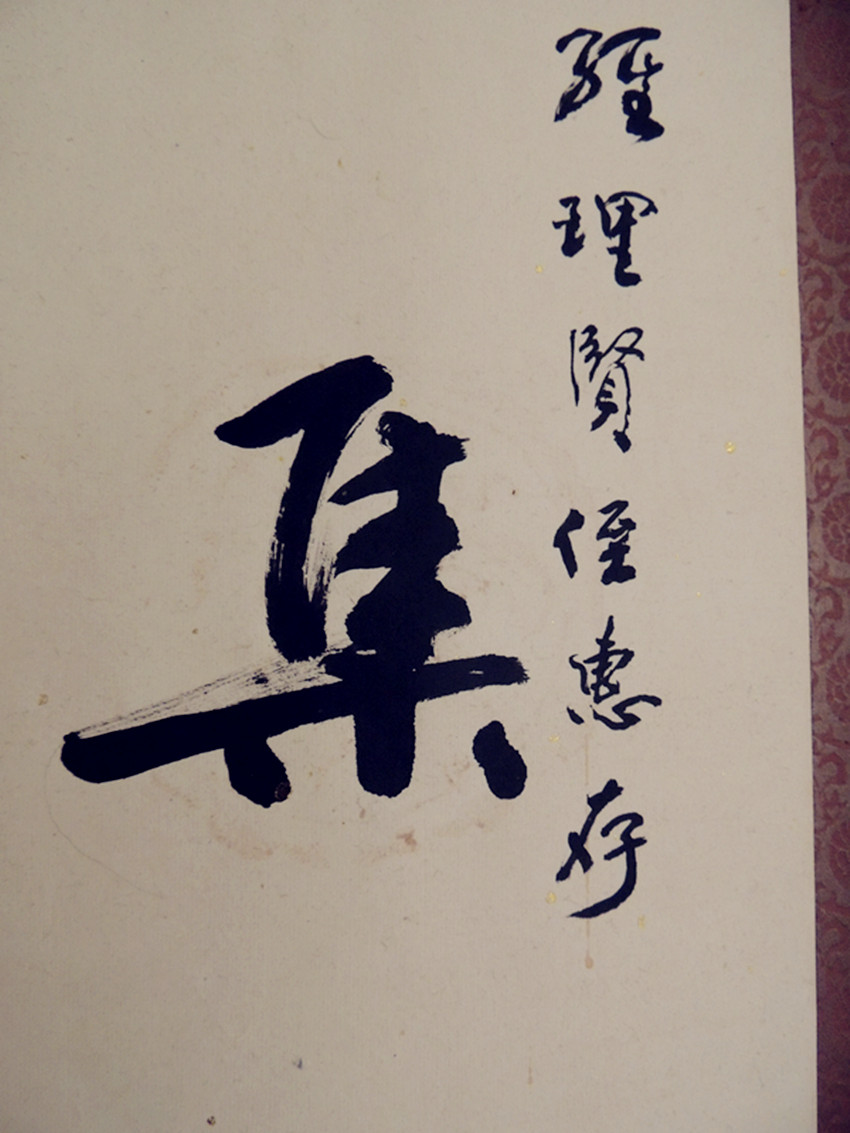 經理賢侄惠存
集